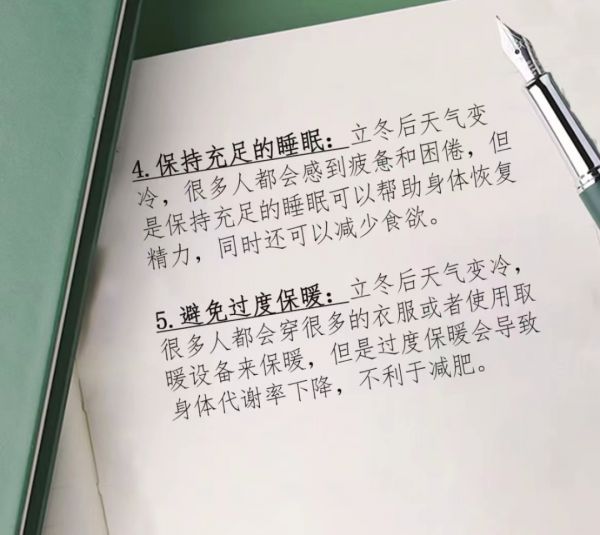 4. 保持充足的睡眠：立冬后天气变
冷，很多人都会感到疲惫和困倦，但
是保持充足的睡眠可以帮助身体恢复
精力，同时还可以减少食欲。
5. 避免过度保暖：立冬后天气变冷，
很多人都会穿很多的衣服或者使用取
暖设备来保暖，但是过度保暖会导致
身体代谢率下降，不利于减肥。